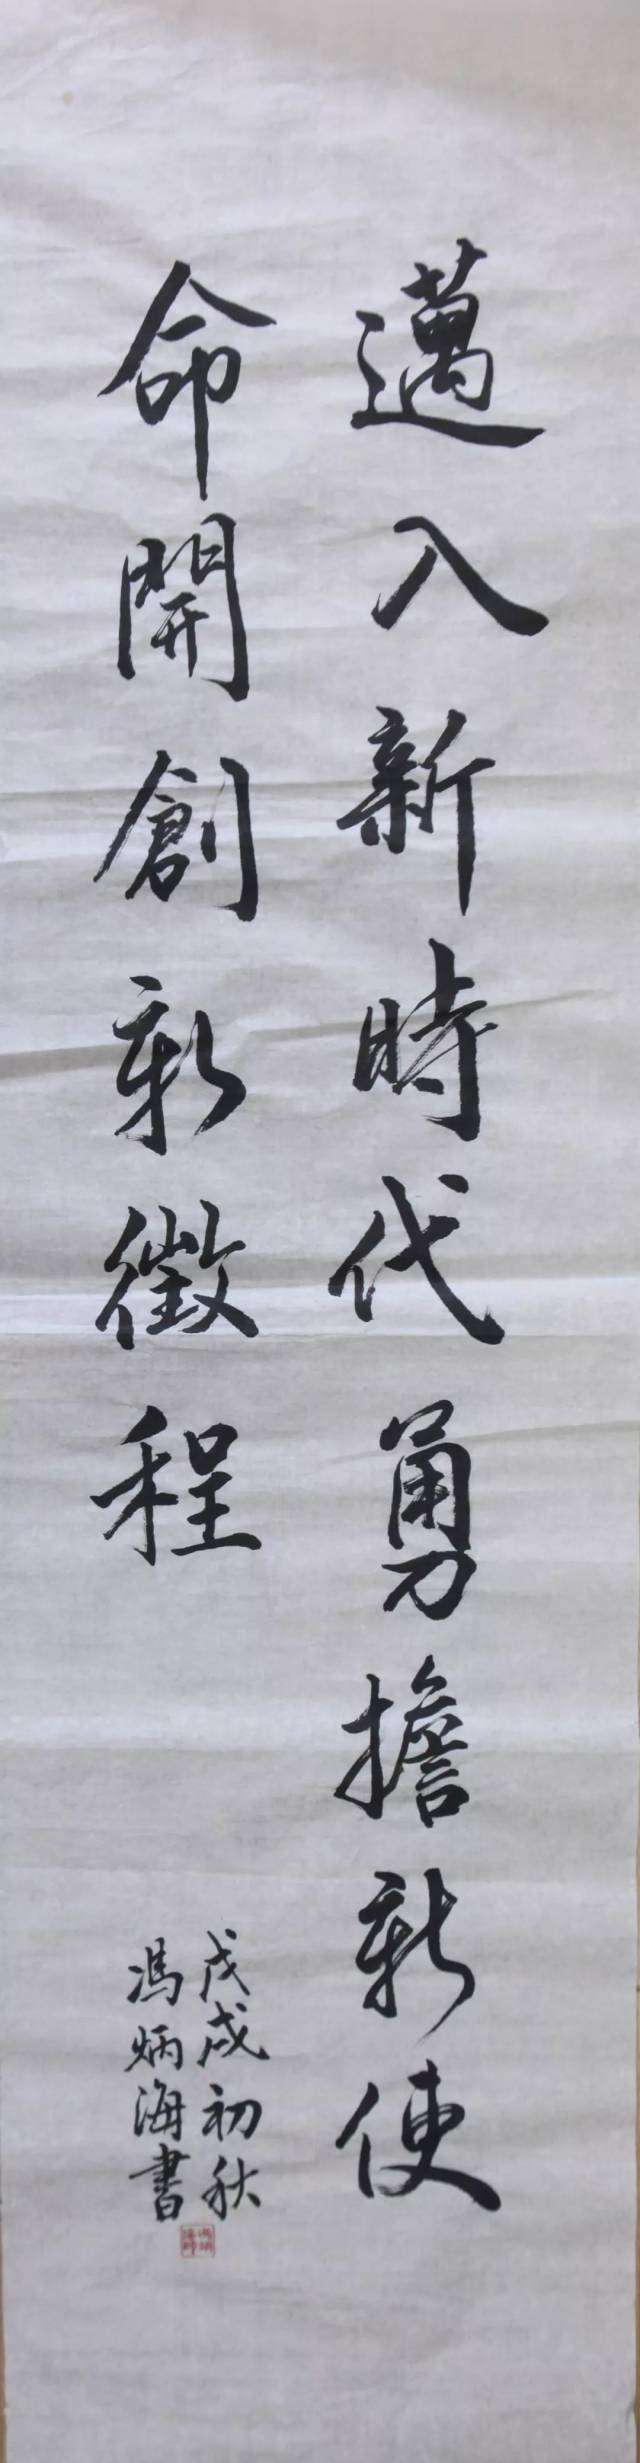 邁入新時代勇擔新使
命開創新徵程
戊戌初秋
馮炳海書